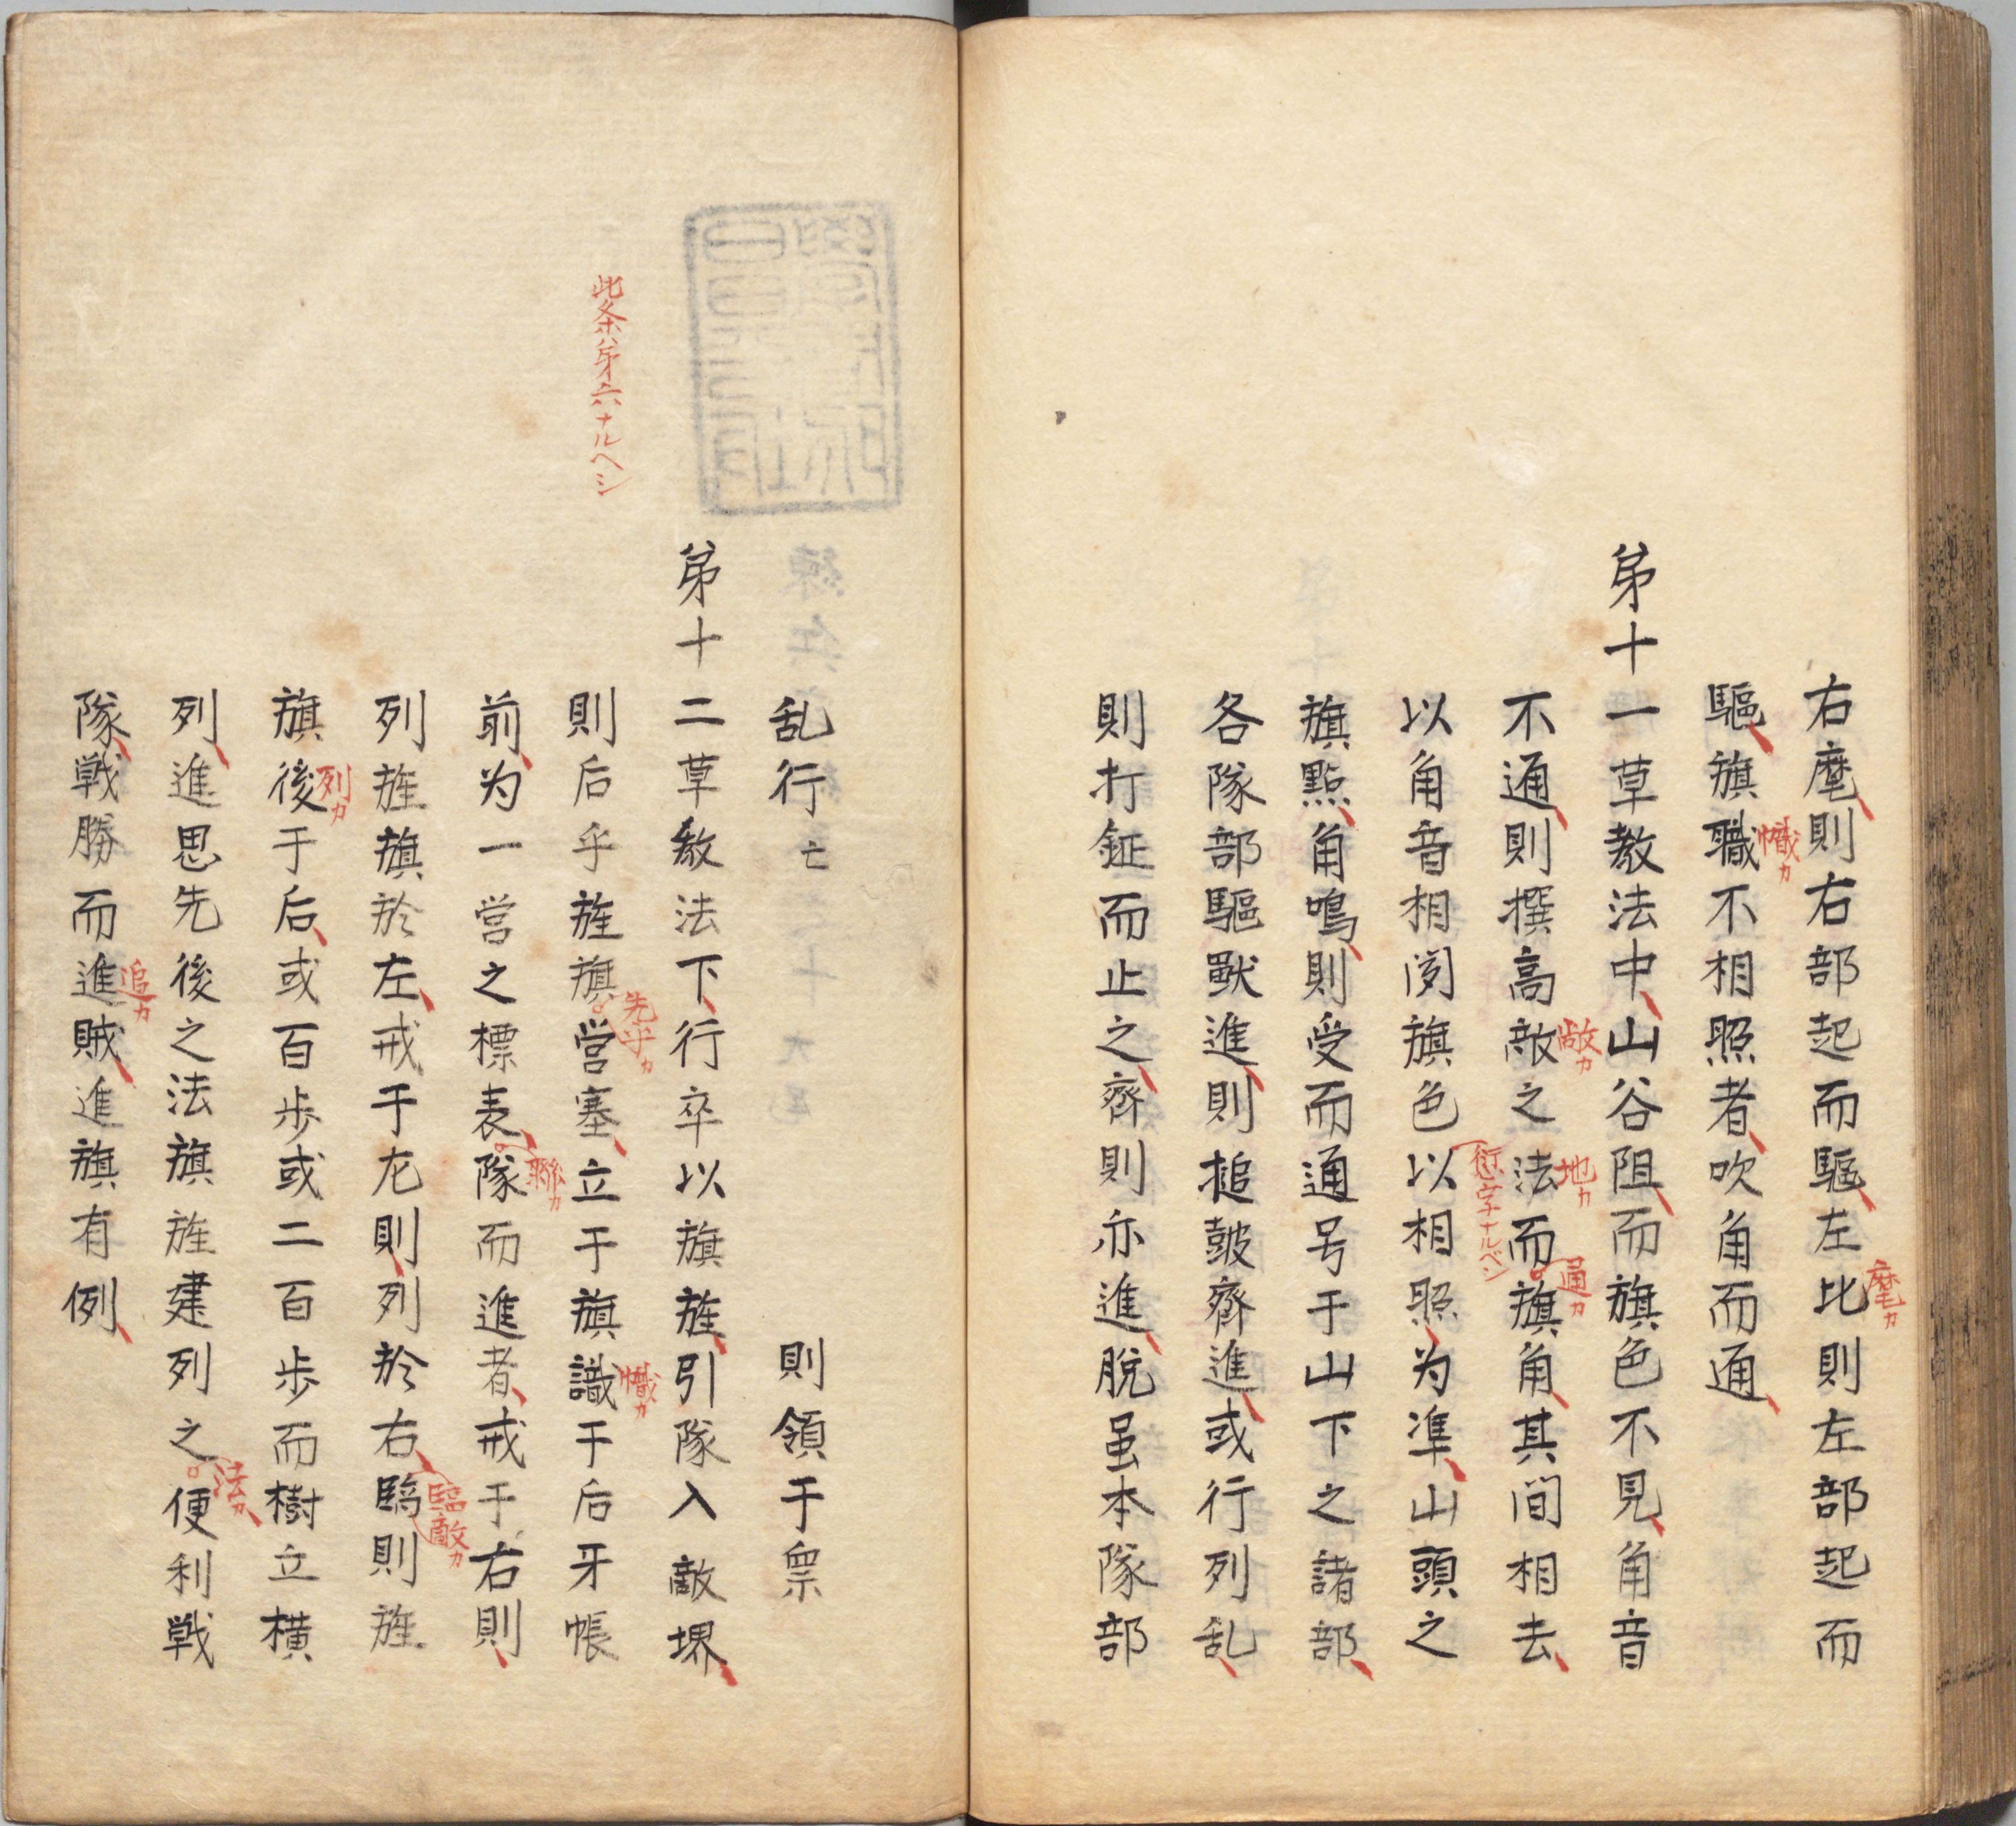 右麾則右部起而驅左比則左部起而
麾カ
驅旗職不相照者吹角而通
幟カ
第十一草教法中山谷阻而旗色不見角音
不通則撰高敵之法而旗角其間相去
敞カ
地カ
通カ
以角音相閲旗色以相照为凖山頭之
衍字ナルベシ
旗點角鳴則受而通号于山下之諸部
各隊部驅獣進則搥皷齊進或行列乱
則打鉦而止之齊則亦進脫虽本隊部
乱行亡 則領于票
第十二草教法下行卒以旗旌引隊入敵堺
此条ハ第六ナルヘシ
則后乎旌旗営塞立于旗識于后牙帳
先乎カ
幟カ
前为一営之標表隊而進者戒于右則
聯カ
列旌旗於左戒于尨則列於右臨則旌
臨敵カ
旗後于后或百歩或二百歩而樹立横
列カ
列進思先後之法旗旌建列之便利戦
法カ
隊戦勝而進賊進旗有例
追カ